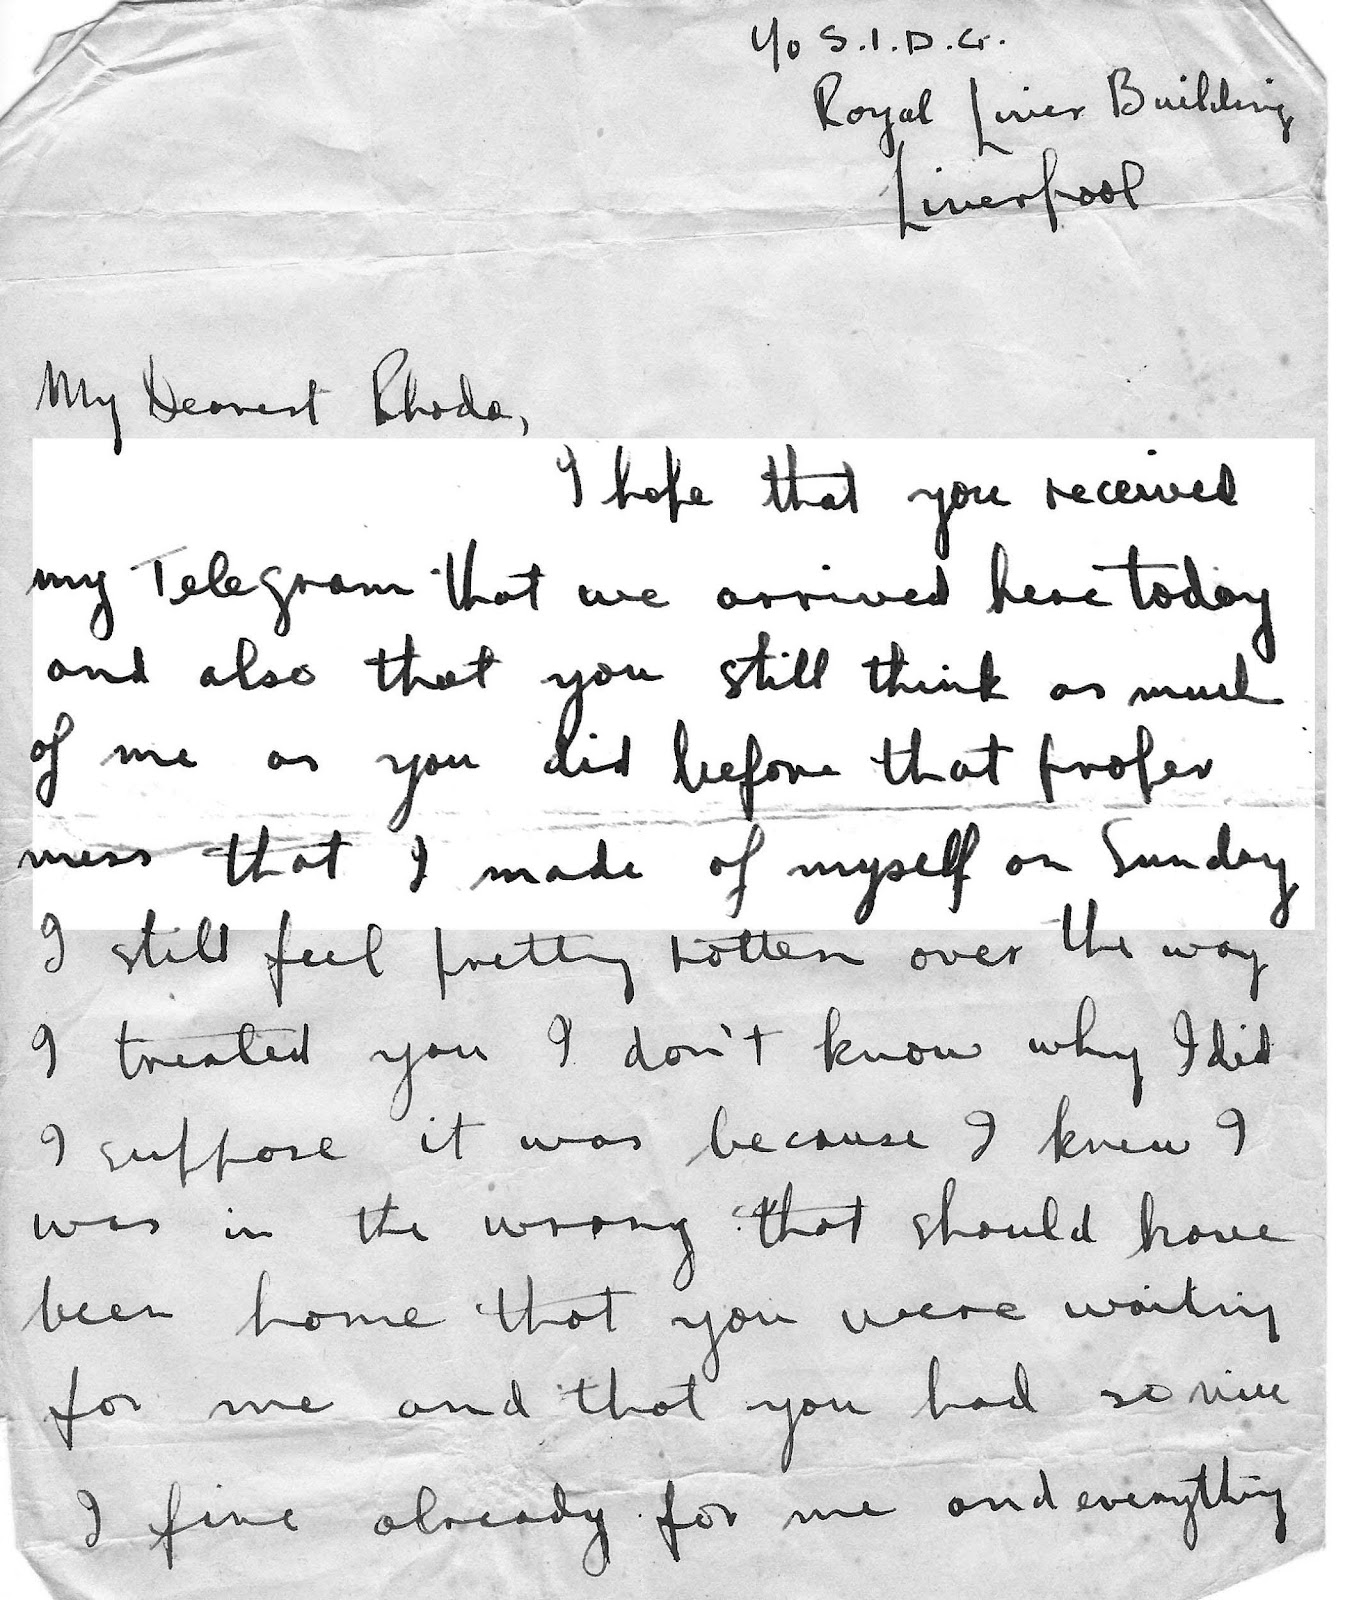 c/o S.I.D.G.
Royal Liver Building
Liverpool
My Dearest Rhoda,
I hope that you received
my Telegram that we arrived here today
and also that you still think as much
of me as you did before that proper
mess that I made of myself on Sunday
I still feel pretty rotten over the way
I treated you I don't know why I did
I suppose it was because I knew I
was in the wrong that should have
been home that you were waiting
for me and that you had so nice
I fire already for me and everything